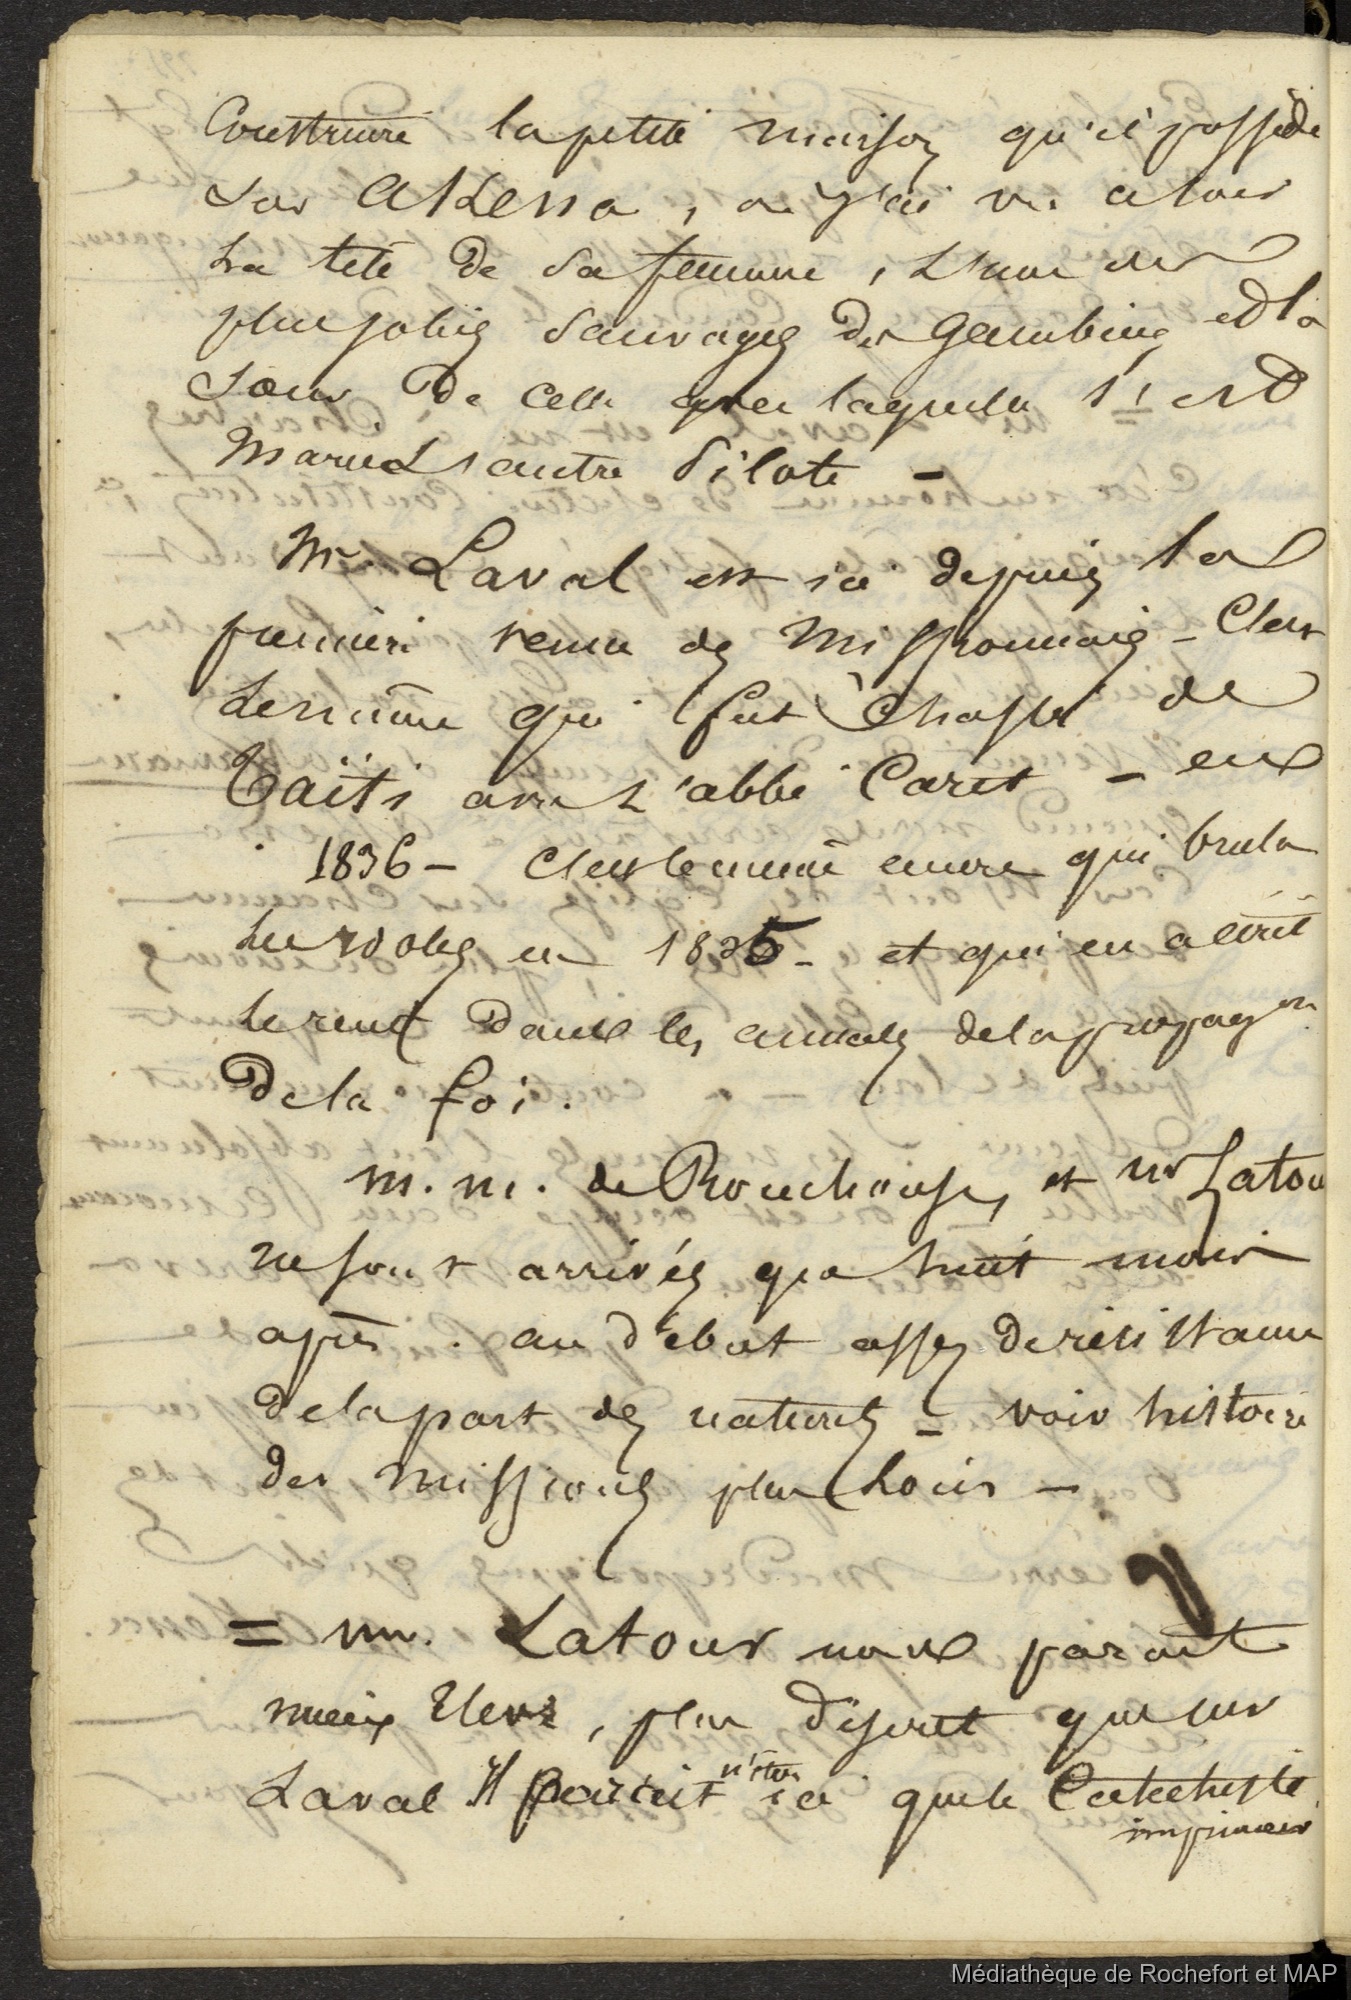 Construire la petite maison qu'il possède
sur AKENA, où j'ai vu alors
la tête de sa femme, l'une des
plus jolies sauvages des Gambier et la
sœur de celle avec laquelle s'est
marié l'autre pilote -
Mr. Laval est ici depuis la
première venue des Missionnaires - C'est
le même qui fut chassé de
Taïti avec l'abbé Caret - en
1836 - C'est le même encore qui brula
les idoles en 1835 - et qui en a écrit
le récit dans les annales de la propag on
De la foi.
M. M. de Rouchouse, et Mr Latour
ne sont arrivés qu'a huit mois
après. au début assez de résistance
de la part des naturels = voir histoire
des Missions plus loin -
= M. Latour nous parait
mieux élevé, plus discret que mr
Laval Il parait n'être ici que le Catechiste
imprimeur
Médiathèque de Rochefort et MAP